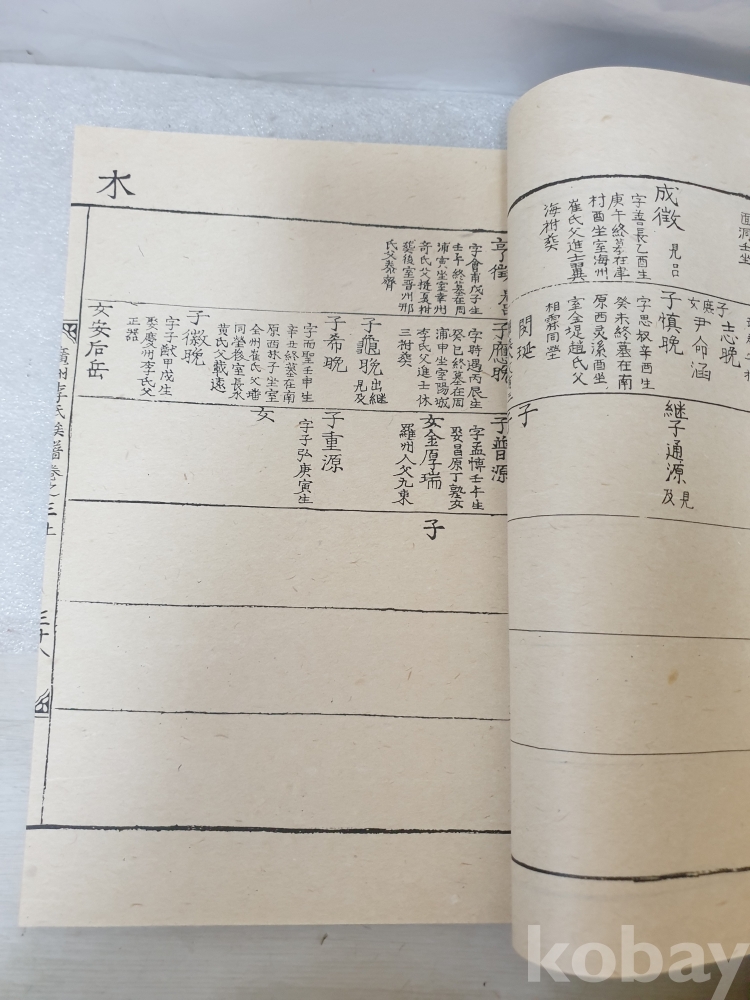 成徵
字善長乙酉生
庚午終墓在車
村酉坐室海州
崔氏父進士翼
海祔葬
子志晩
庶女尹命涵
子愼晩
字思叔辛酉生
癸未終墓在南
原西灵溪酉坐
室金堤趙氏父
相霖同塋
閔珽
継子通源 見及
子
亨徵
字會甫戊子生
壬午終墓在周
浦寅坐室幸州
奇氏父挺夏祔
葬後室晋州邢
氏父泰齊
子應晩
字時遇丙辰生
癸巳終墓在周
浦甲坐室陽城
李氏父進士休
三祔葬
子龜晩 出継見及
子希晩
字而聖壬申生
辛丑終墓在南
原西林子坐室
全州崔氏父墦
同塋後室長水
黃氏父載遠
子徵晩
字子猷甲戌生
娶慶州李氏父
正器
女安后岳
子普源
字孟博壬午生
娶昌原丁塾女
女金厚瑞
羅州人父九東
子重源
字子弘庚寅生
女
子
木
州李氏族譜卷之三上
三十八
kobay